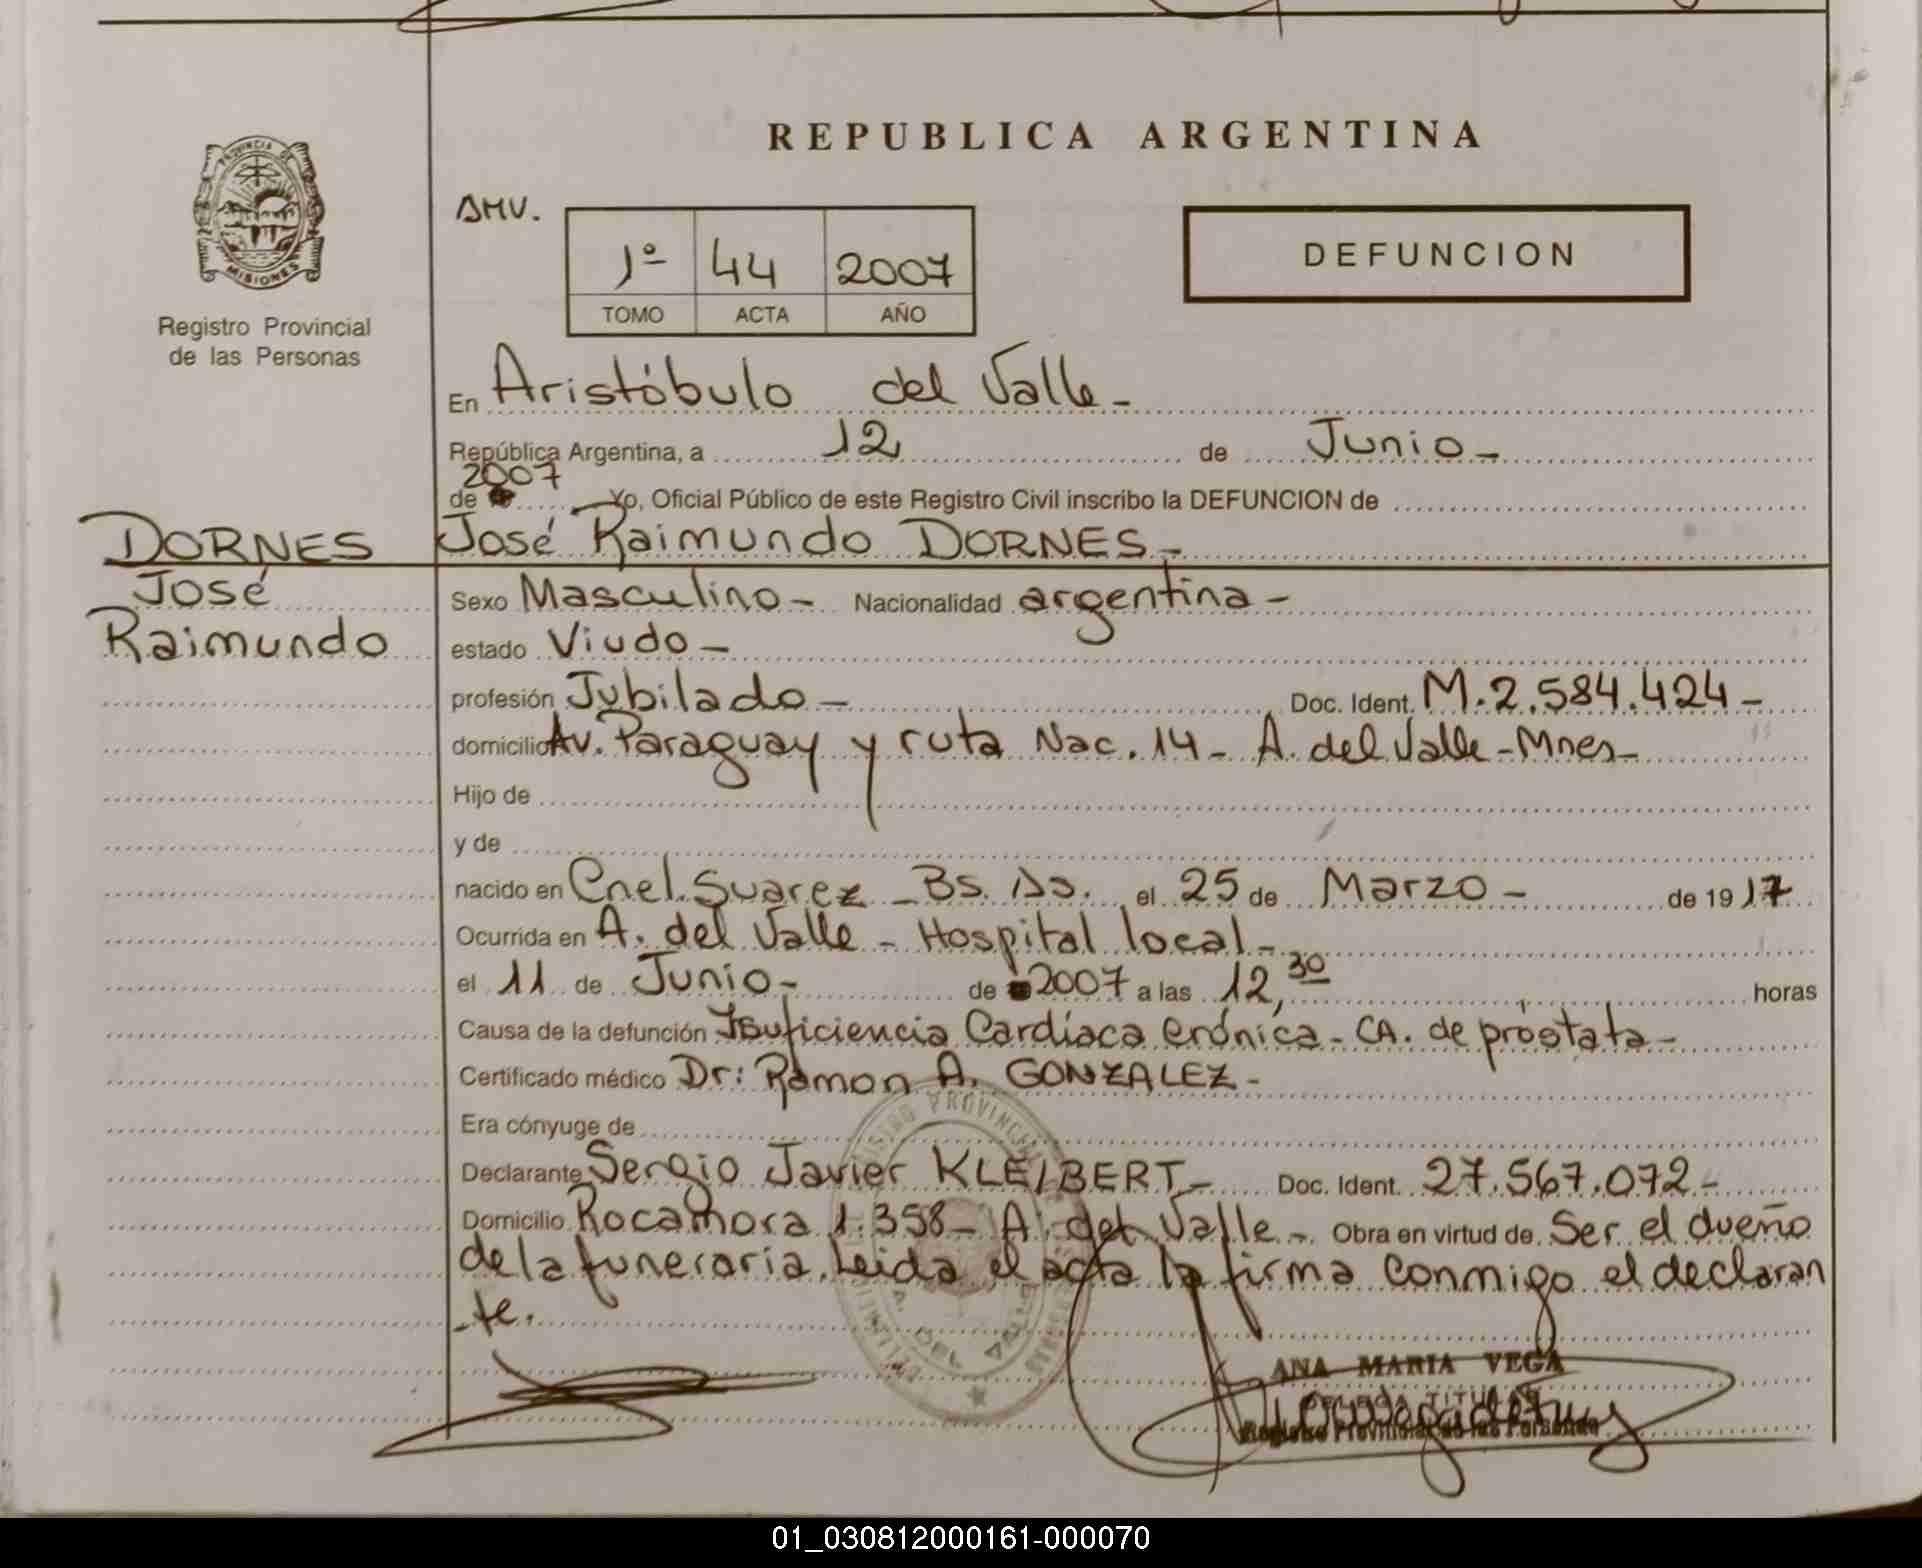 REPUBLICA ARGENTINA
PROVINCIA DE
MISIONES
Registro Provincial
de las Personas
AMV.
1º 44 2007
TOMO ACTA AÑO
DEFUNCION
En Aristóbulo del Valle -
República Argentina, a 12 de Junio -
2007
de Yo, Oficial Público de este Registro Civil inscribo la DEFUNCION de
José Raimundo DORNES -
DORNES
José
Raimundo
Sexo Masculino - Nacionalidad argentina -
estado Viudo -
profesión Jubilado - Doc. Ident. M. 2.584.424 -
domicilio Av. Paraguay y ruta Nac. 14 - A. del Valle - Mnes -
Hijo de
y de
nacido en Cnel. Suarez - Bs. As. el 25 de Marzo - de 19 17
Ocurrida en A. del Valle - Hospital local -
el 11 de Junio - de 2007 a las 12,30 horas
Causa de la defunción Insuficiencia Cardíaca Crónica - CA. de próstata -
Certificado médico Dr: Ramon A. GONZALEZ -
Era cónyuge de
Declarante Sergio Javier KLEIBERT - Doc. Ident. 27.567.072 -
Domicilio Rocamora 1.358 - A. del Valle - Obra en virtud de Ser el dueño
de la funeraria. Leida el acta la firma conmigo el declaran
-te.
ANA MARIA VEGA
TITULAR
Registro Provincial de las Personas
01_030812000161-000070